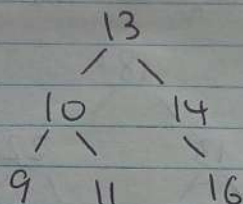 13
10 14
9 11 16